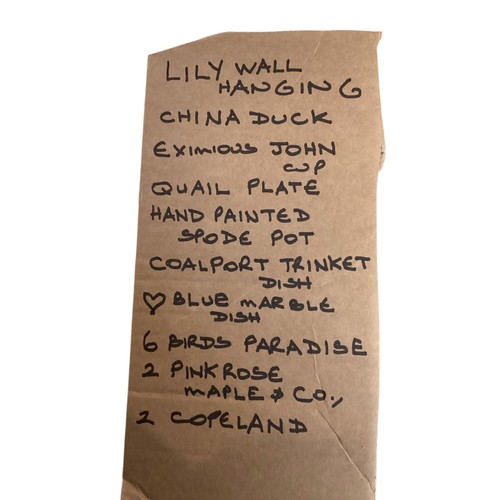 LILY WALL
HANGING
CHINA DUCK
EXIMIOUS JOHN
CUP
QUAIL PLATE
HAND PAINTED
SPODE POT
COALPORT TRINKET
DISH
♡ BLUE MARBLE
DISH
6 BIRDS PARADISE
2 PINK ROSE
MAPLE & CO.,
2 COPELAND